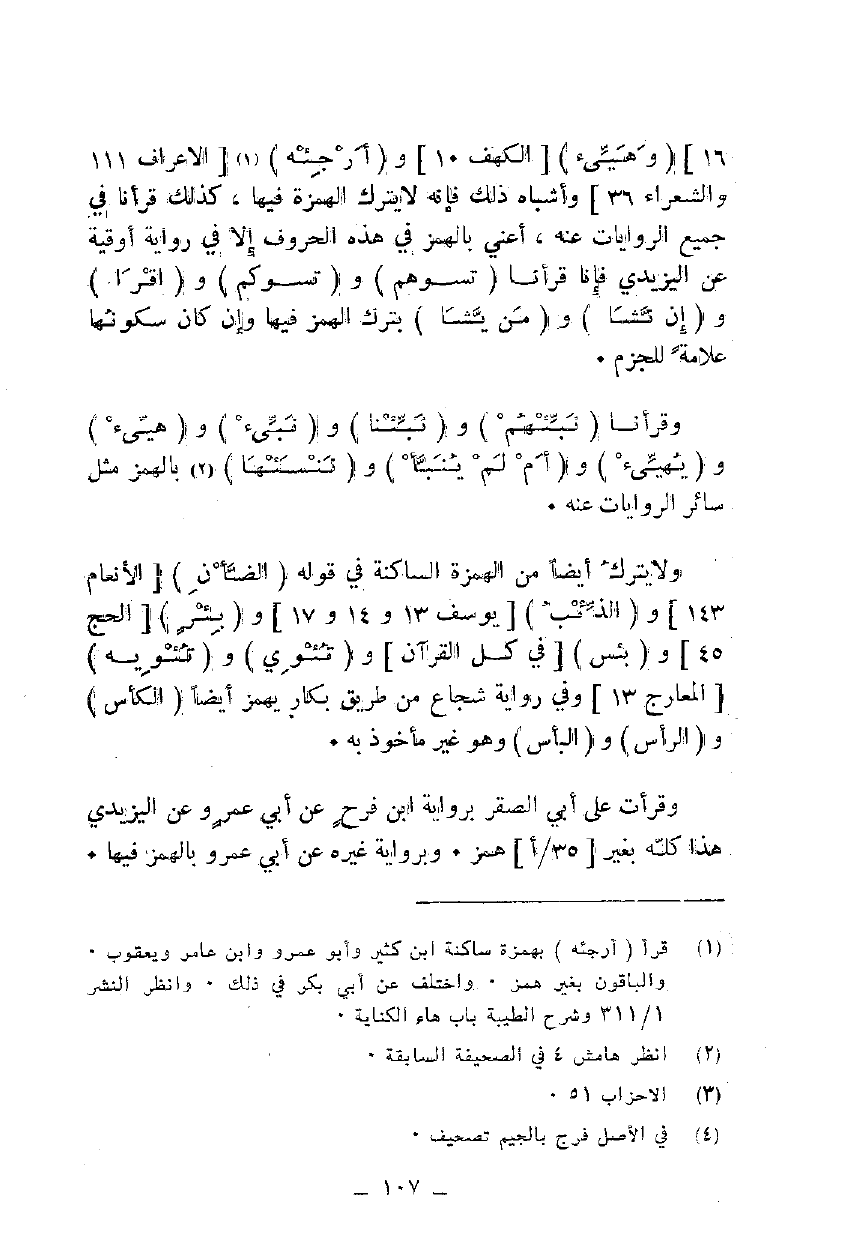 ١٦ ] ( وَهَيِّىء ) [ الكهف ١٠ ] و ( أَرْجِئْه ) (١) [ الاعراف ١١١
والشعراء ٣٦ ] وأشباه ذلك فإنه لايترك الهمزة فيها ، كذلك قرأنا في
جميع الروايات عنه ، أعني بالهمز في هذه الحروف إلا في رواية أوقية
عن اليزيدي فإنا قرأنا ( تسوهم ) و ( تسوكم ) و ( اقْرَا )
و ( إن نَّشَا ) و ( مَن يَشَا ) بترك الهمز فيها وإن كان سكونها
علامةً للجزم .
وقرأنا ( نَبِّئْهُمْ ) و ( نَبِّئْنا ) و ( نَبِّىءْ ) و ( هيِّىءْ )
و ( يُهيِّىءْ ) و ( أَمْ لَمْ يُنَبَّأْ ) و ( نَنْسَئْهَا ) (٢) بالهمز مثل
سائر الروايات عنه .
ولايتركُ أيضاً من الهمزة الساكنة في قوله ( الضَّأْنِ ) [ الأنعام
١٤٣ ] و ( الذِّئْبُ ) [ يوسف ١٣ و ١٤ و ١٧ ] و ( بِئْرٍ ) [ الحج
٤٥ ] و ( بئس ) [ في كل القرآن ] و ( تُئْوِي ) و ( تُئْوِيه )
[ المعارج ١٣ ] وفي رواية شجاع من طريق بكارٍ يهمز أيضاً ( الكأس )
و ( الرأس ) و ( البأس ) وهو غير مأخوذ به .
وقرأت على أبي الصقر برواية ابن فرحٍ عن أبي عمرٍو عن اليزيدي
هذا كلّه بغير [ ٣٥/أ ] همز . وبرواية غيره عن أبي عمرو بالهمز فيها .
(١) قرأ ( أرجئه ) بهمزة ساكنة ابن كثير وأبو عمرو وابن عامر ويعقوب .
والباقون بغير همز . واختلف عن أبي بكر في ذلك . وانظر النشر
٣١١/١ وشرح الطيبة باب هاء الكناية .
(٢) انظر هامش ٤ في الصحيفة السابقة .
(٣) الاحزاب ٥١ .
(٤) في الأصل فرج بالجيم تصحيف .
_ ١٠٧ _